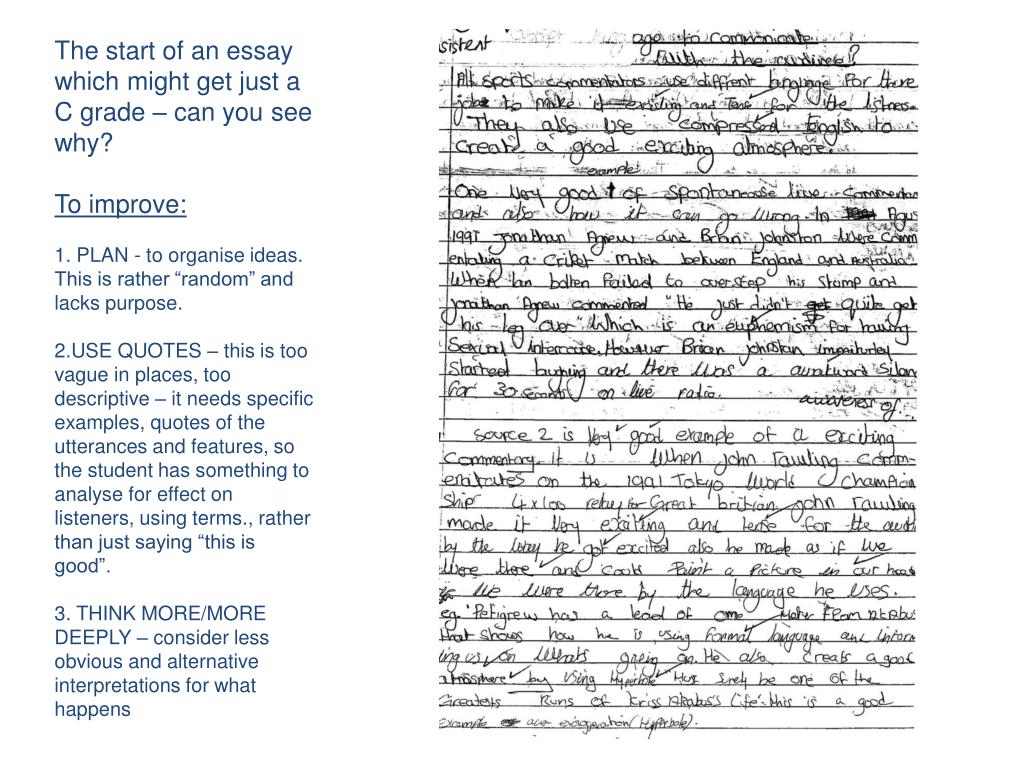 The start of an essay
which might get just a
C grade – can you see
why?
To improve:
1. PLAN - to organise ideas.
This is rather “random” and
lacks purpose.
2.USE QUOTES – this is too
vague in places, too
descriptive – it needs specific
examples, quotes of the
utterances and features, so
the student has something to
analyse for effect on
listeners, using terms., rather
than just saying “this is
good”.
3. THINK MORE/MORE
DEEPLY – consider less
obvious and alternative
interpretations for what
happens
sistent age to communicate
with the audience?
All sports commentators use diffrent language for there
jobs to make it exciting and Tense for the listness
They also use compressed English to
creats a good exciting atmosphere.
example
One Very good of spontaneose live commentar
and also how it can go wrong. In Agus
1991 Jonathan Agnew and Brian Johnston where comm
entating a Criket match between England and Australia
When Ian bolten Failed to overstep his stump and
Jonathan Agnew commented "He just didn't quite get
his leg over" Which is an euphemism for having
Sexual intercorse, However Brian Johnstan
Started and there was a silan
for 30 seconds on live radio.
awareness of...
Source 2 is Very good example of a exciting
Commentary. it is When John rawling comm-
entates on the 1991 Tokyo World Champion
Ship 4x100 relay for Great britian, John rawling
made it Very exciting and tense for the audi
by the way he got excited also he made as if we
were there and could Paint a Picture in our head
we were there by the language he uses.
eg. 'Petigrew has a lead of one Meter From Akabu
that shows how he is using formal language and inform
ing us on Whats going on. He also creats a good
atmosphere by using Hyperbole "This surely be one of the
Greatest Runs of Kriss Akabus's Life" this is a good
Example exaggeration (Hyperbole).